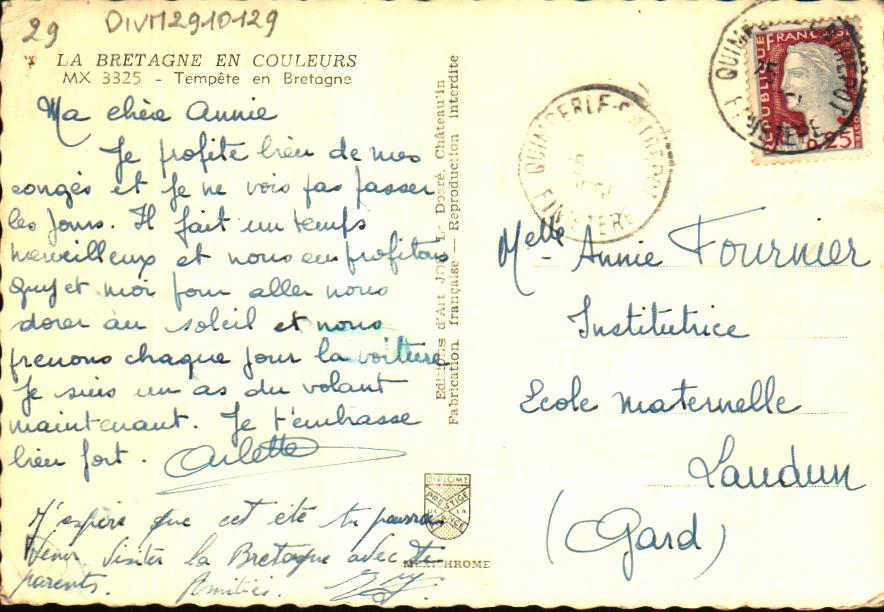 29 DIVM2910129
LA BRETAGNE EN COULEURS
MX 3325 - Tempête en Bretagne
Ma chère Annie
Je profite bien de mes
congés et je ne vois pas passer
les jours. Il fait un temps
merveilleux et nous en profitons
Guy et moi pour aller nous
dorer au soleil et nous
prenons chaque jour la voiture
Je suis un as du volant
maintenant. Je t'embrasse
bien fort. Arlette
J'espère que cet été tu pourras
venir visiter la Bretagne avec tes
parents. Amitiés. Guy
Editions d'Art JOS Le Doaré, Châteaulin
Fabrication française — Reproduction interdite
DIPLOME
PRESTIGE
DE LA
FRANCE
MEXICHROME
QUIMPERLE-ENTREPOT
FINISTERE
QUIMPERLE-ENTREPOT
FINISTERE
REPUBLIQUE FRANÇAISE
0,25
Melle Annie Fournier
Institutrice
Ecole maternelle
Laudun
(Gard)